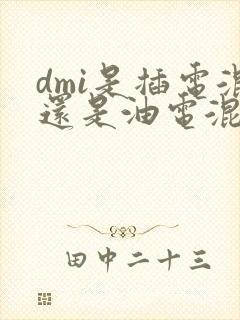 dmi是插電混
還是油電混
田中二十三